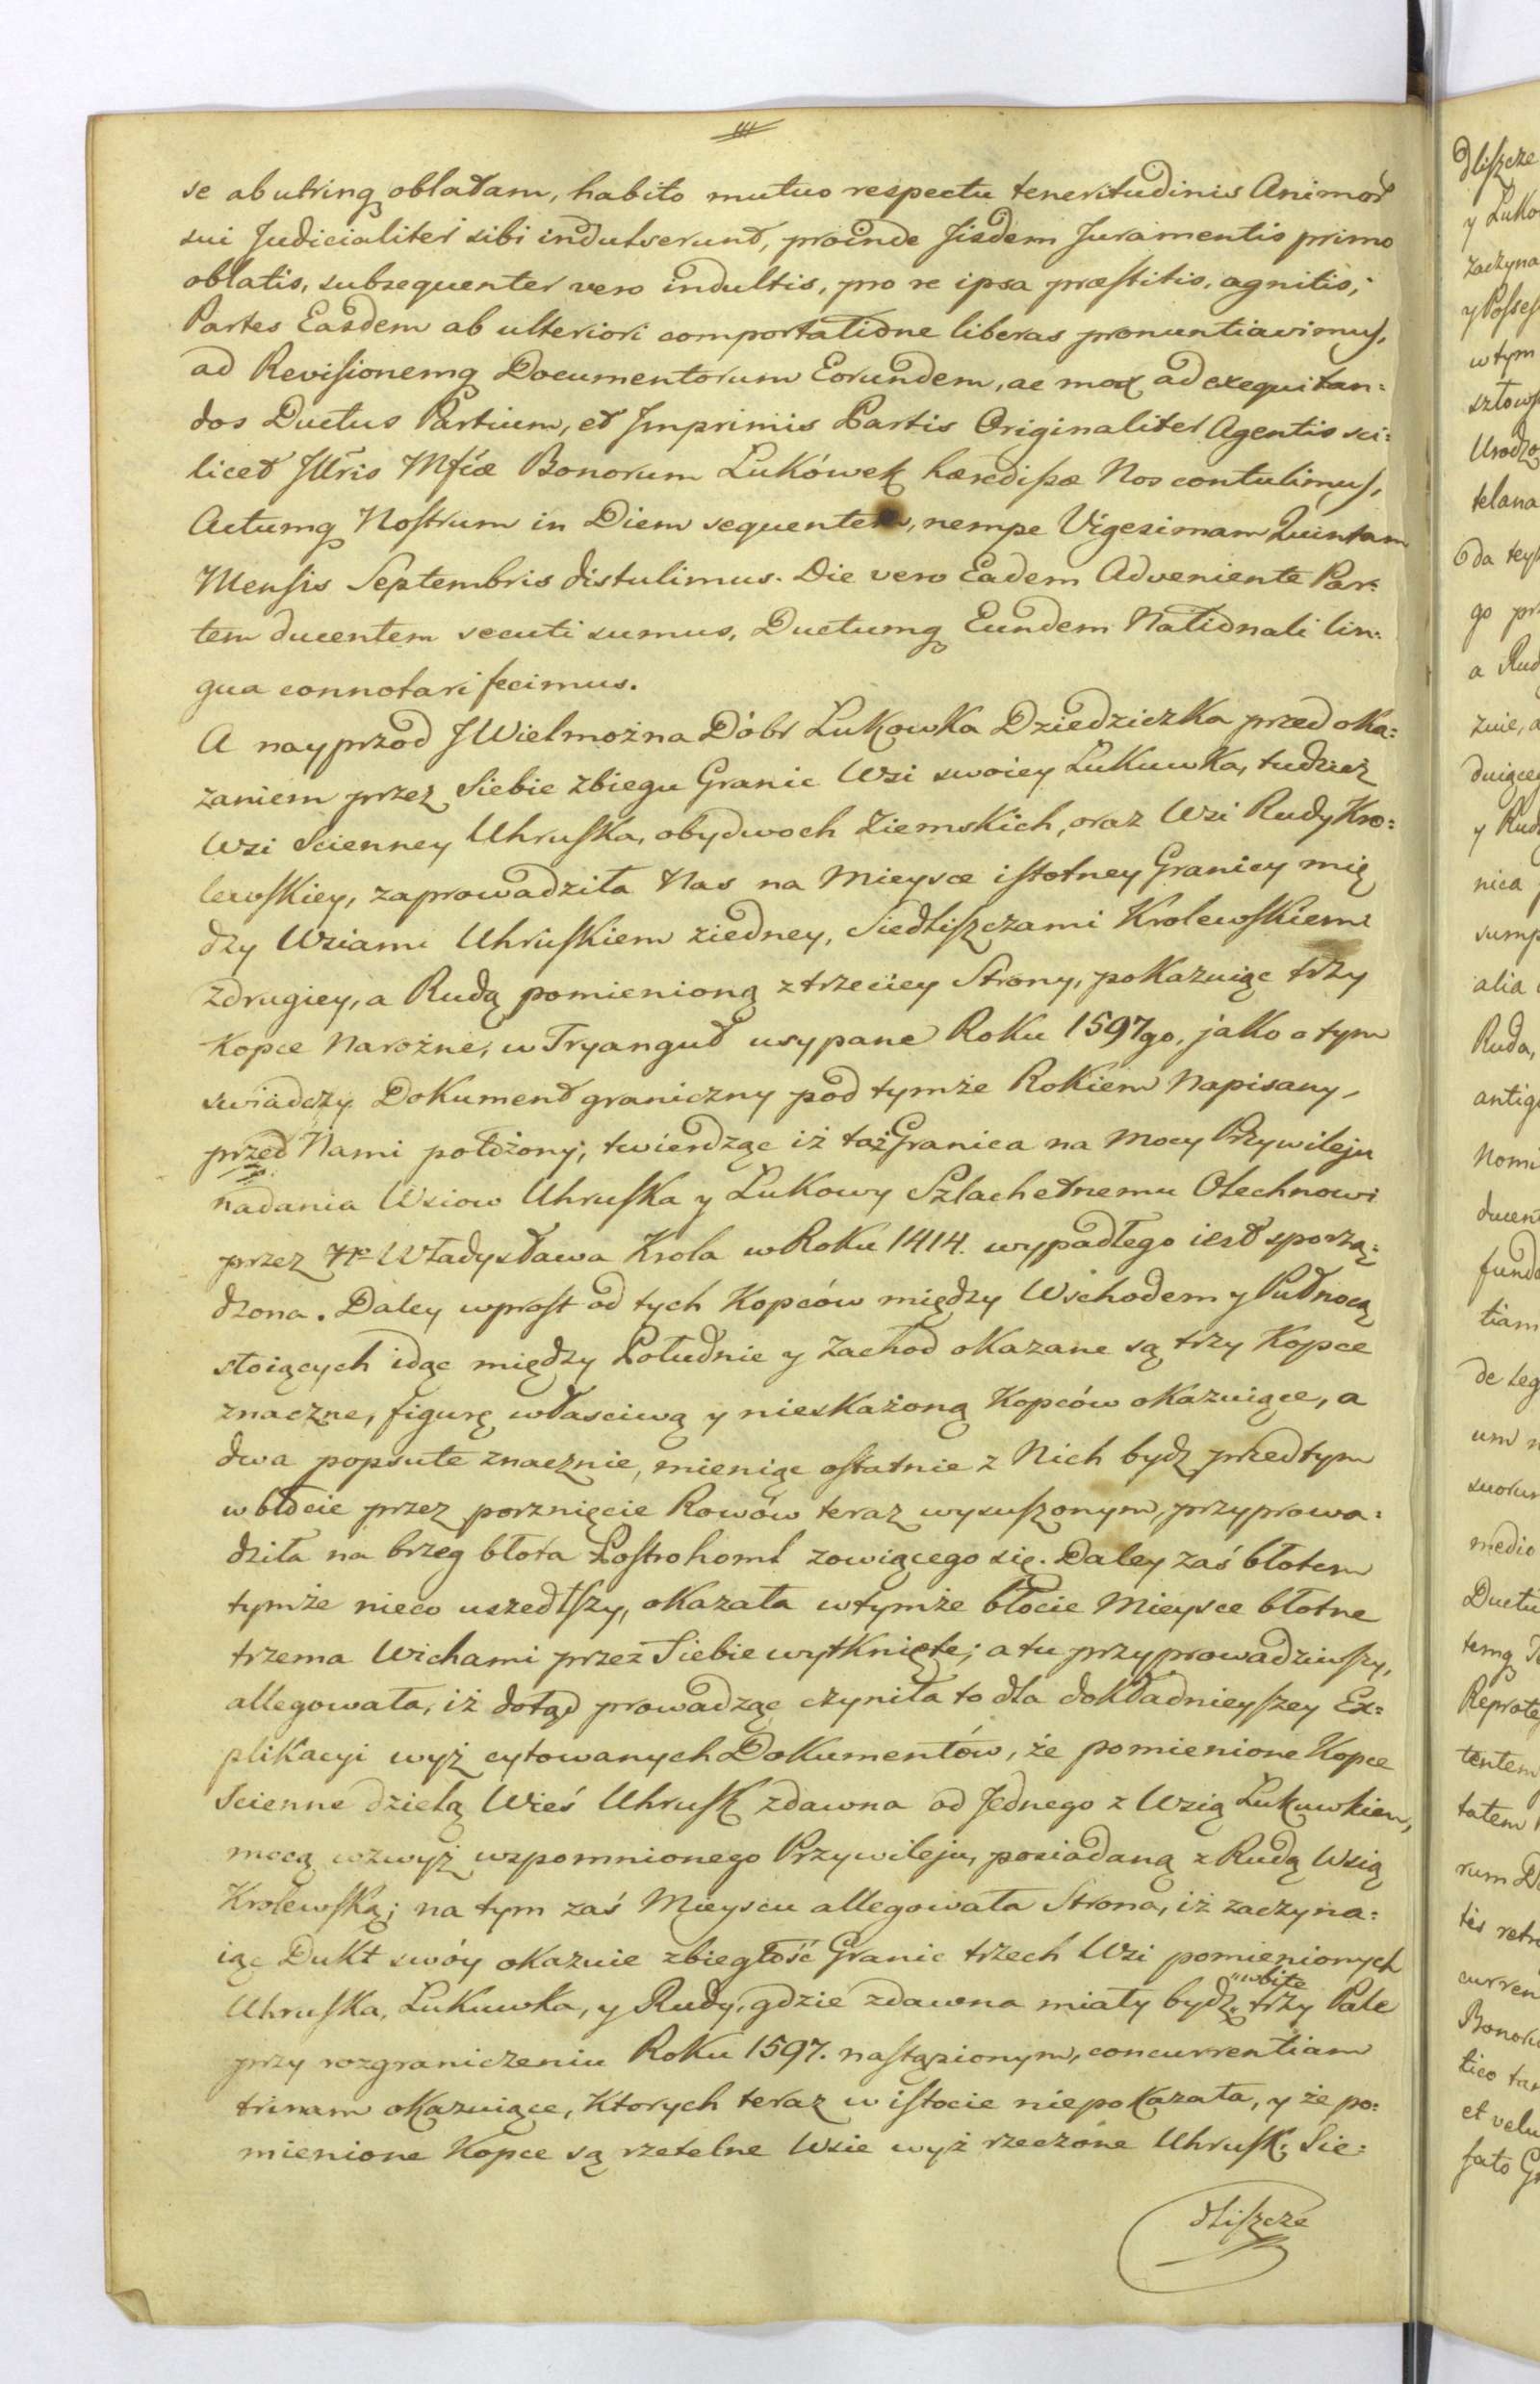 se ab utrinq oblatam, habito mutuo respectu teneritudinis Animor
sui Judicialiter sibi indulserunt, proinde Jisdem Juramentis primo
oblatis, subsequenter vero indultis, pro re ipsa præstitis, agnitis,
Partes Easdem ab ulteriori comportatione liberas pronuntiavimus,
ad Revisionemq Documentorum Eorundem, ac mox ad exequitan:
dos Ductus Partium, et Imprimis Partis Originaliter Agentis sci:
licet Jllris Mfcæ Bonorum Lukówek hæredissæ Nos contulimus,
Actumq Nostrum in Diem sequentem, nempe Vigesimam Quintam
Mensis Septembris distulimus. Die vero Eadem Adveniente Par:
tem ducentem secuti sumus, Ductumq Eundem Nationali lin:
gua connotari fecimus.
A nayprzod JWielmożna Dóbr Lukowka Dziedziczka przed oka:
zaniem przez Siebie zbiegu Granic Wsi swoiey Lukuwka, tudzież
Wsi Scienney Uhruska, obydwoch Ziemskich, oraz Wsi Rudy Kro:
lewskiey, zaprowadziła Nas na Mieysce istotney Granicy mię
dzy Wsiami Uhruskiem ziedney, Siedliszczami Krolewskiemi
zdrugiey, a Rudą pomienioną z trzeciey Strony, pokazuiąc trzy
Kopce Narożne, w Tryanguł usypane Roku 1597go, jako o tym
swiadczy Dokument graniczny pod tymże Rokiem Napisany,
przed Nami położony, twierdząc iż taż Granica na Mocy Przywileju
nadania Wsiow Uhruska y Lukowy Szlachetnemu Olechnowi
przez Władysława Krola w Roku 1414. wypadłego iest sporzą:
dzona. Daley wprost od tych Kopców między Wschodem y Pułnocą
stoiących idąc między Południe y Zachod okazane są trzy Kopce
znaczne, figurę właściwą y nieskażoną Kopców okazuiące, a
dwa popsute znacznie, mieniąc ostatnie z Nich bydz przedtym
w błocie przez porznięcie Rowów teraz wysuszonym, przyprowa:
dziła na brzeg błota Łostrohoml zowiącego się. Daley zaś błotem
tymże nieco uszedłszy, okazała w tymże błocie Mieysce błotne
trzema Wichami przez Siebie wytknięte; a tu przyprowadziwszy,
allegowała, iż dotąd prowadząc czyniła to dla dokładnieyszey Ex:
plikacyi wyż cytowanych Dokumentów, że pomienione Kopce
Scienne dzielą Wieś Uhrusk zdawna od Jednego z Wsią Lukuwkiem,
mocą wzwyż wspomnionego Przywileju, posiadaną z Rudą Wsią
Krolewską; na tym zaś Mieyscu allegowała Strona, iż zaczyna:
iąc Dukt swóy okazuie zbiegłość Granic trzech Wsi pomienionych
Uhruska, Lukuwka, y Rudy, gdzie zdawna miały bydz "wbite" trzy Pale
przy rozgraniczeniu Roku 1597. nastąpionym, concurrentiam
trinam okazuiące, Ktorych teraz w istocie niepokazała, y że po:
mienione Kopce są rzetelne Wsie wyż rzeczone Uhrusk, Sie:
dliszcze
dliszcze
y Luko
zaczyna
y Posses
w tym